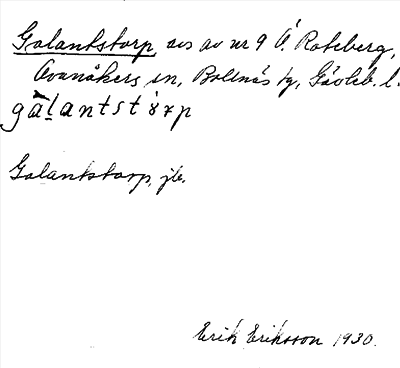 Galantstorp, avs av nr 9 Ö. Roteberg,
Ovanåkers sn, Bollnäs tg, Gävleb. l.
gàlantstȯrp
Galantstorp, jb.
Erik Eriksson 1930.